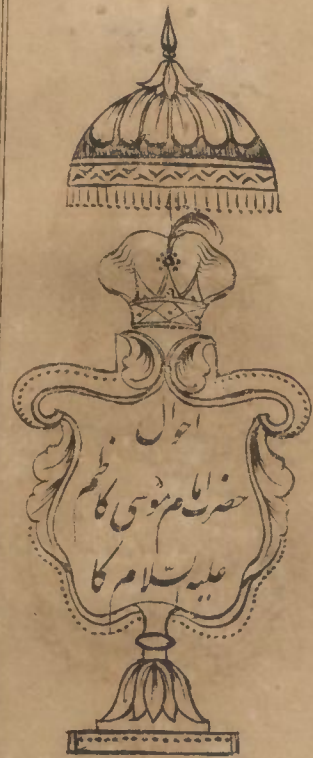 احوال
حضرت امام موسی کاظم
علیہ السلام کا